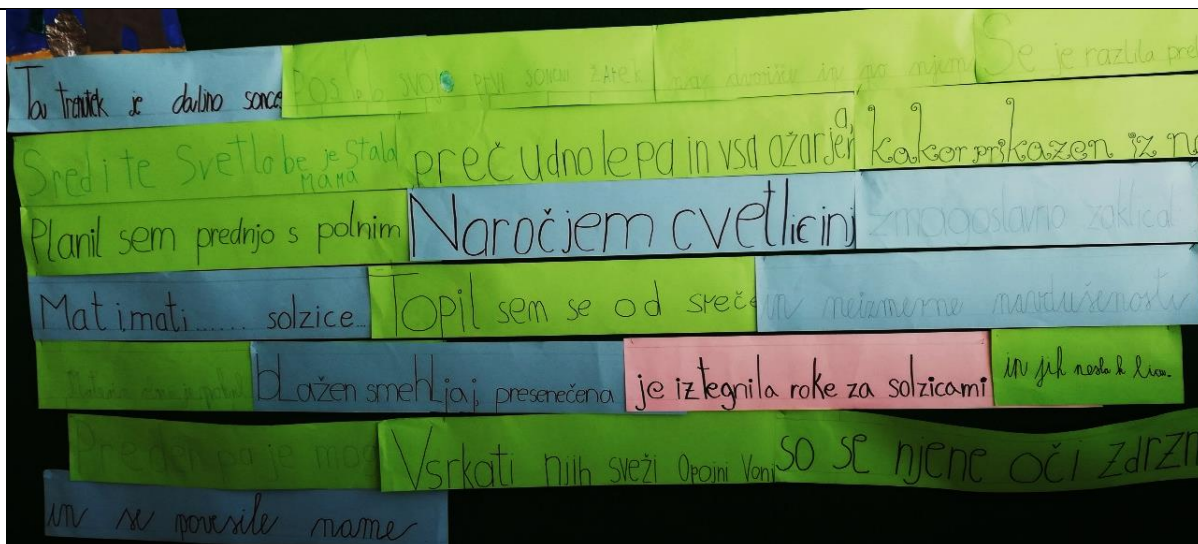 Ta trenutek je daljno sonce svoj prvi sončni žarek na dvorišče in po njem Se je razlila pre
Sredite Svetlobe je stala mama prečudno lepa in vsa ožarjena kakor prikazen iz n
Planil sem prednjo s polnim Naročjem cvetlic inj zmagoslavno zaklical
Mati mati....... solzice... Topil sem se od sreče in neizmerne navdušenosti
bLažen smehLjaj, presenečena je iztegnila roke za solzicami in jih nesla k licu.
Preden pa je mog Vsrkati njih sveži Opojni Vonj so se njene oči zdrzn
in se povesile name